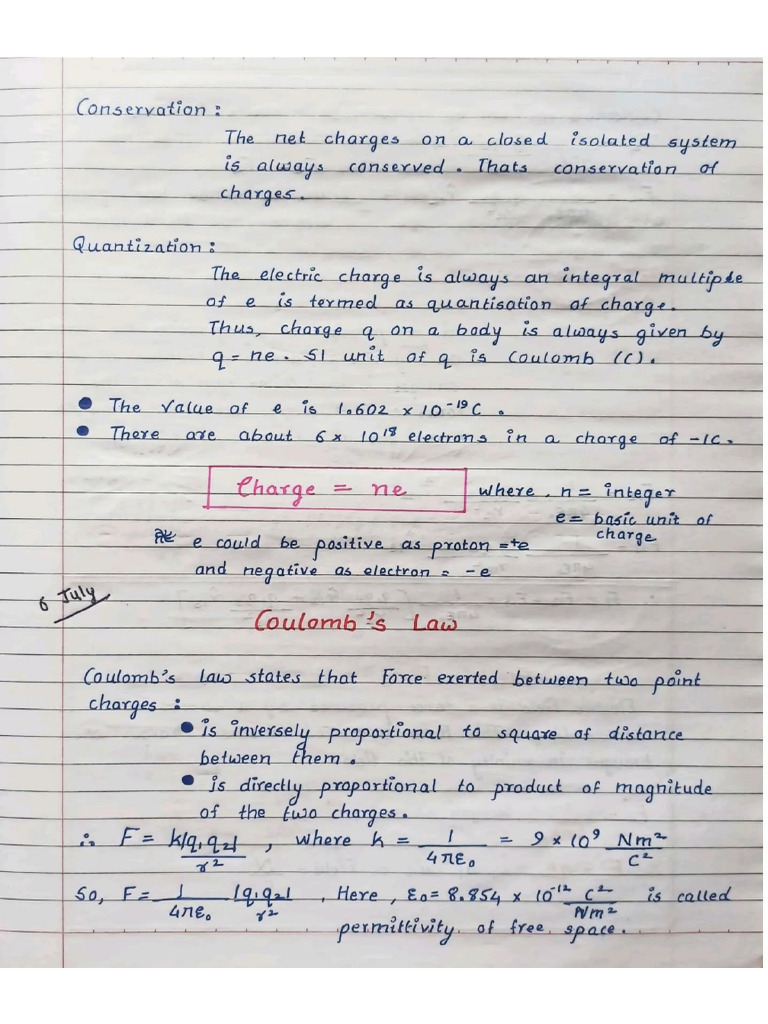 Conservation :
The net charges on a closed isolated system
is always conserved. Thats conservation of
charges.
Quantization :
The electric charge is always an integral multiple
of e is termed as quantisation of charge.
Thus, charge q on a body is always given by
q = ne. SI unit of q is Coulomb (C).
● The value of e is 1.602 × 10⁻¹⁹C.
● There are about 6 × 10¹⁸ electrons in a charge of -1C.
Charge = ne where, n = integer
e = basic unit of
charge
e could be positive as proton = +e
and negative as electron = -e
6 July
Coulomb's Law
Coulomb's Law states that Force exerted between two point
charges :
● is inversely proportional to square of distance
between them.
● is directly proportional to product of magnitude
of the two charges.
∴ F = k|q₁q₂|/r², where k = 1/4πε₀ = 9 × 10⁹ Nm²/C²
So, F = 1/4πε₀ |q₁q₂|/r², Here, ε₀ = 8.854 × 10⁻¹² C²/Nm² is called
permittivity of free space.